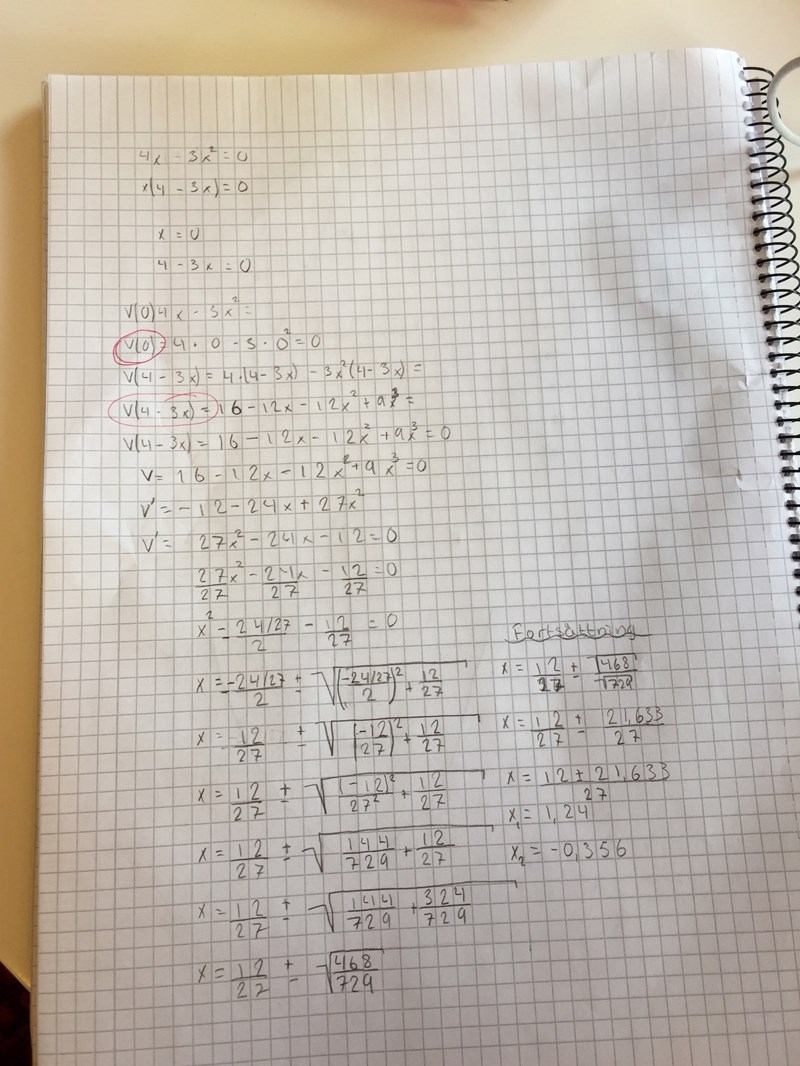 4x - 3x² = 0
x(4 - 3x) = 0
x = 0
4 - 3x = 0
V(0) 4x - 3x² =
V(0) = 4 · 0 - 3 · 0² = 0
V(4 - 3x) = 4·(4 - 3x) - 3x²(4 - 3x) =
V(4 - 3x) = 16 - 12x - 12x² + 9x³ =
V(4 - 3x) = 16 - 12x - 12x² + 9x³ = 0
V = 16 - 12x - 12x² + 9x³ = 0
V' = -12 - 24x + 27x²
V' = 27x² - 24x - 12 = 0
27x²/27 - 24x/27 - 12/27 = 0
x² - (24/27)/2 - 12/27 = 0
x = (-24/27)/2 ± √(((-24/27)/2)² + 12/27)
x = 12/27 ± √((-12/27)² + 12/27)
x = 12/27 ± √((-12)²/27² + 12/27)
x = 12/27 ± √(144/729 + 12/27)
x = 12/27 ± √(144/729 + 324/729)
x = 12/27 ± √(468/729)
Fortsättning
x = 12/27 ± √468/√729
x = 12/27 ± 21,633/27
x = (12 ± 21,633)/27
x₁ = 1,24
x₂ = -0,356